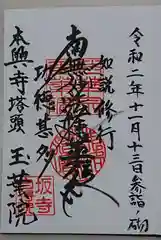 令和二年十一月十三日参詣ノ砌
如説修行
南無妙法蓮華経
功徳甚多
本興寺塔頭
玉葉院